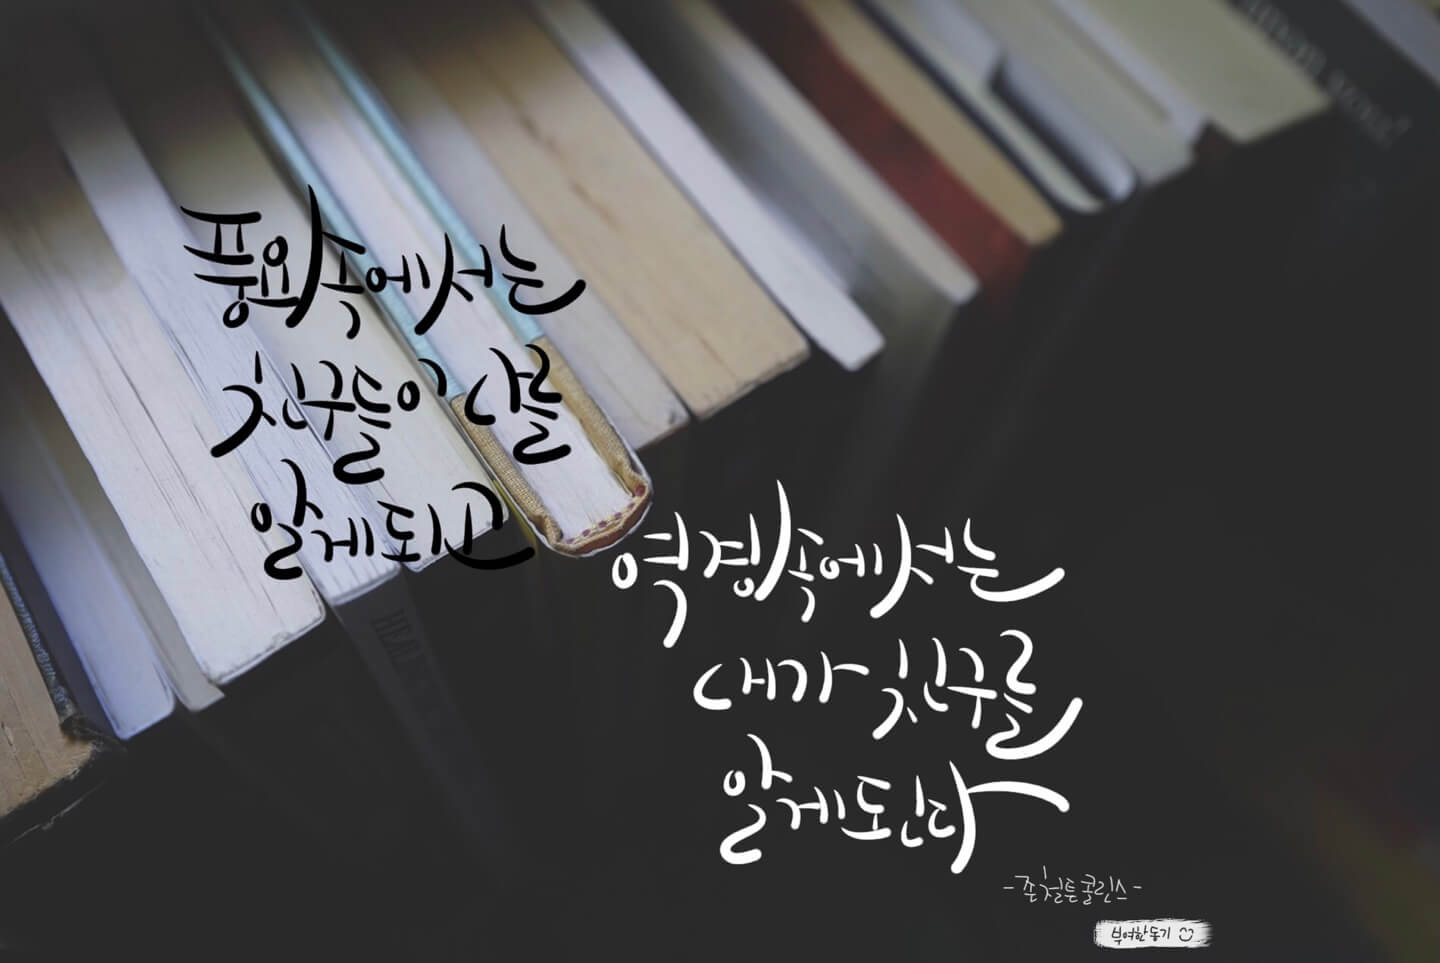 풍요 속에서는
친구들이 나를
알게되고
역경 속에서는
내가 친구를
알게된다
-존 철튼 콜린스-
부여한동기